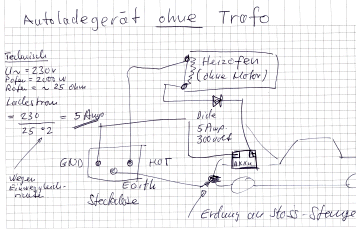 Autoladegerät ohne Trafo
Technisch
U~ = 230V
Pofen = 2000 W
Rofen = ~ 25 Ohm
Ladestrom
= 230
25 * 2
= 5 Amp
Wegen
Heizofen
(ohne Motor)
Diode
5 Amp.
300 Volt
AKKU
GND
HOT
Earth
Steckdose
Erdung an Stoss-Stange